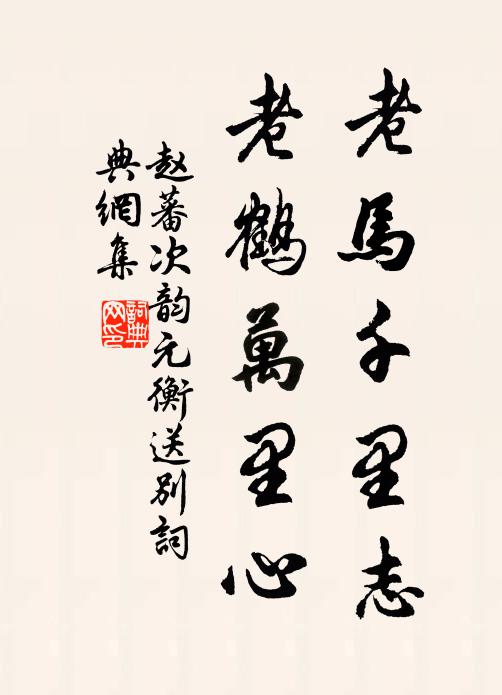 老馬千里志
老鶴萬里心
赵蕃次韵元衡送别詞
典網集
詞典
网印